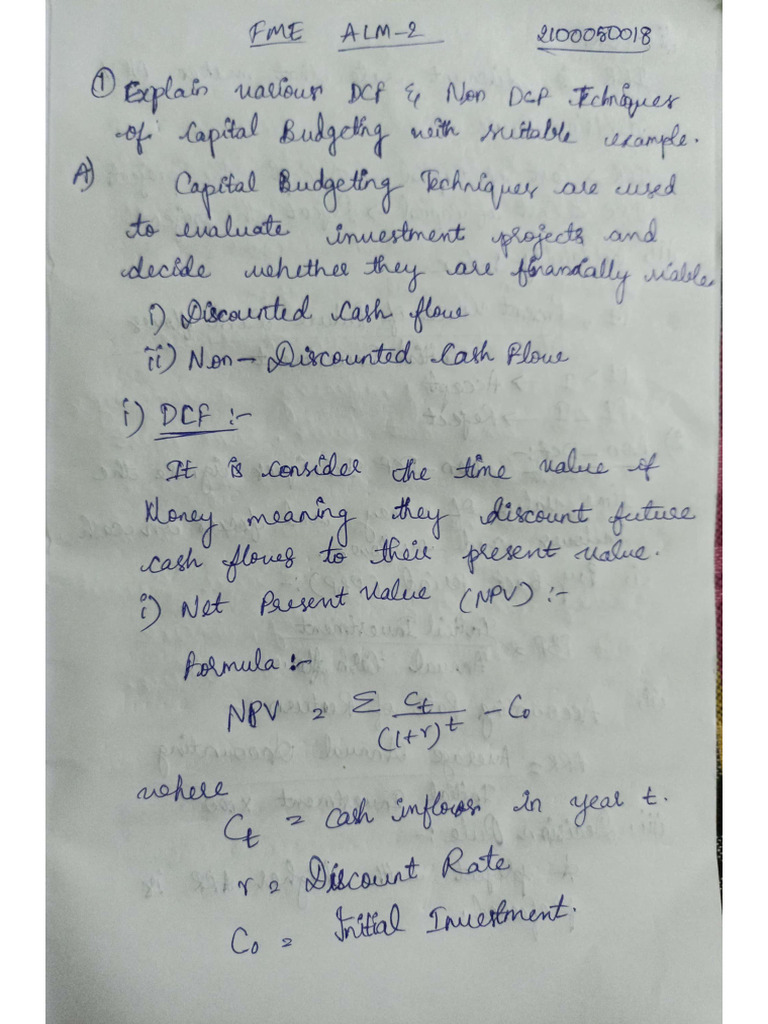 FME ALM-2 2100050018
① Explain various DCF & Non DCF Techniques
of Capital Budgeting with suitable example.
A) Capital Budgeting Techniques are used
to evaluate investment projects and
decide whether they are financially viable.
i) Discounted Cash flow
ii) Non-Discounted Cash Flow
i) DCF :-
It is consider the time value of
Money meaning they discount future
cash flows to their present value.
i) Net Present Value (NPV) :-
Formula :-
NPV = Σ Ct/(1+r)^t - C0
where
Ct = Cash inflows in year t.
r = Discount Rate
C0 = Initial Investment.